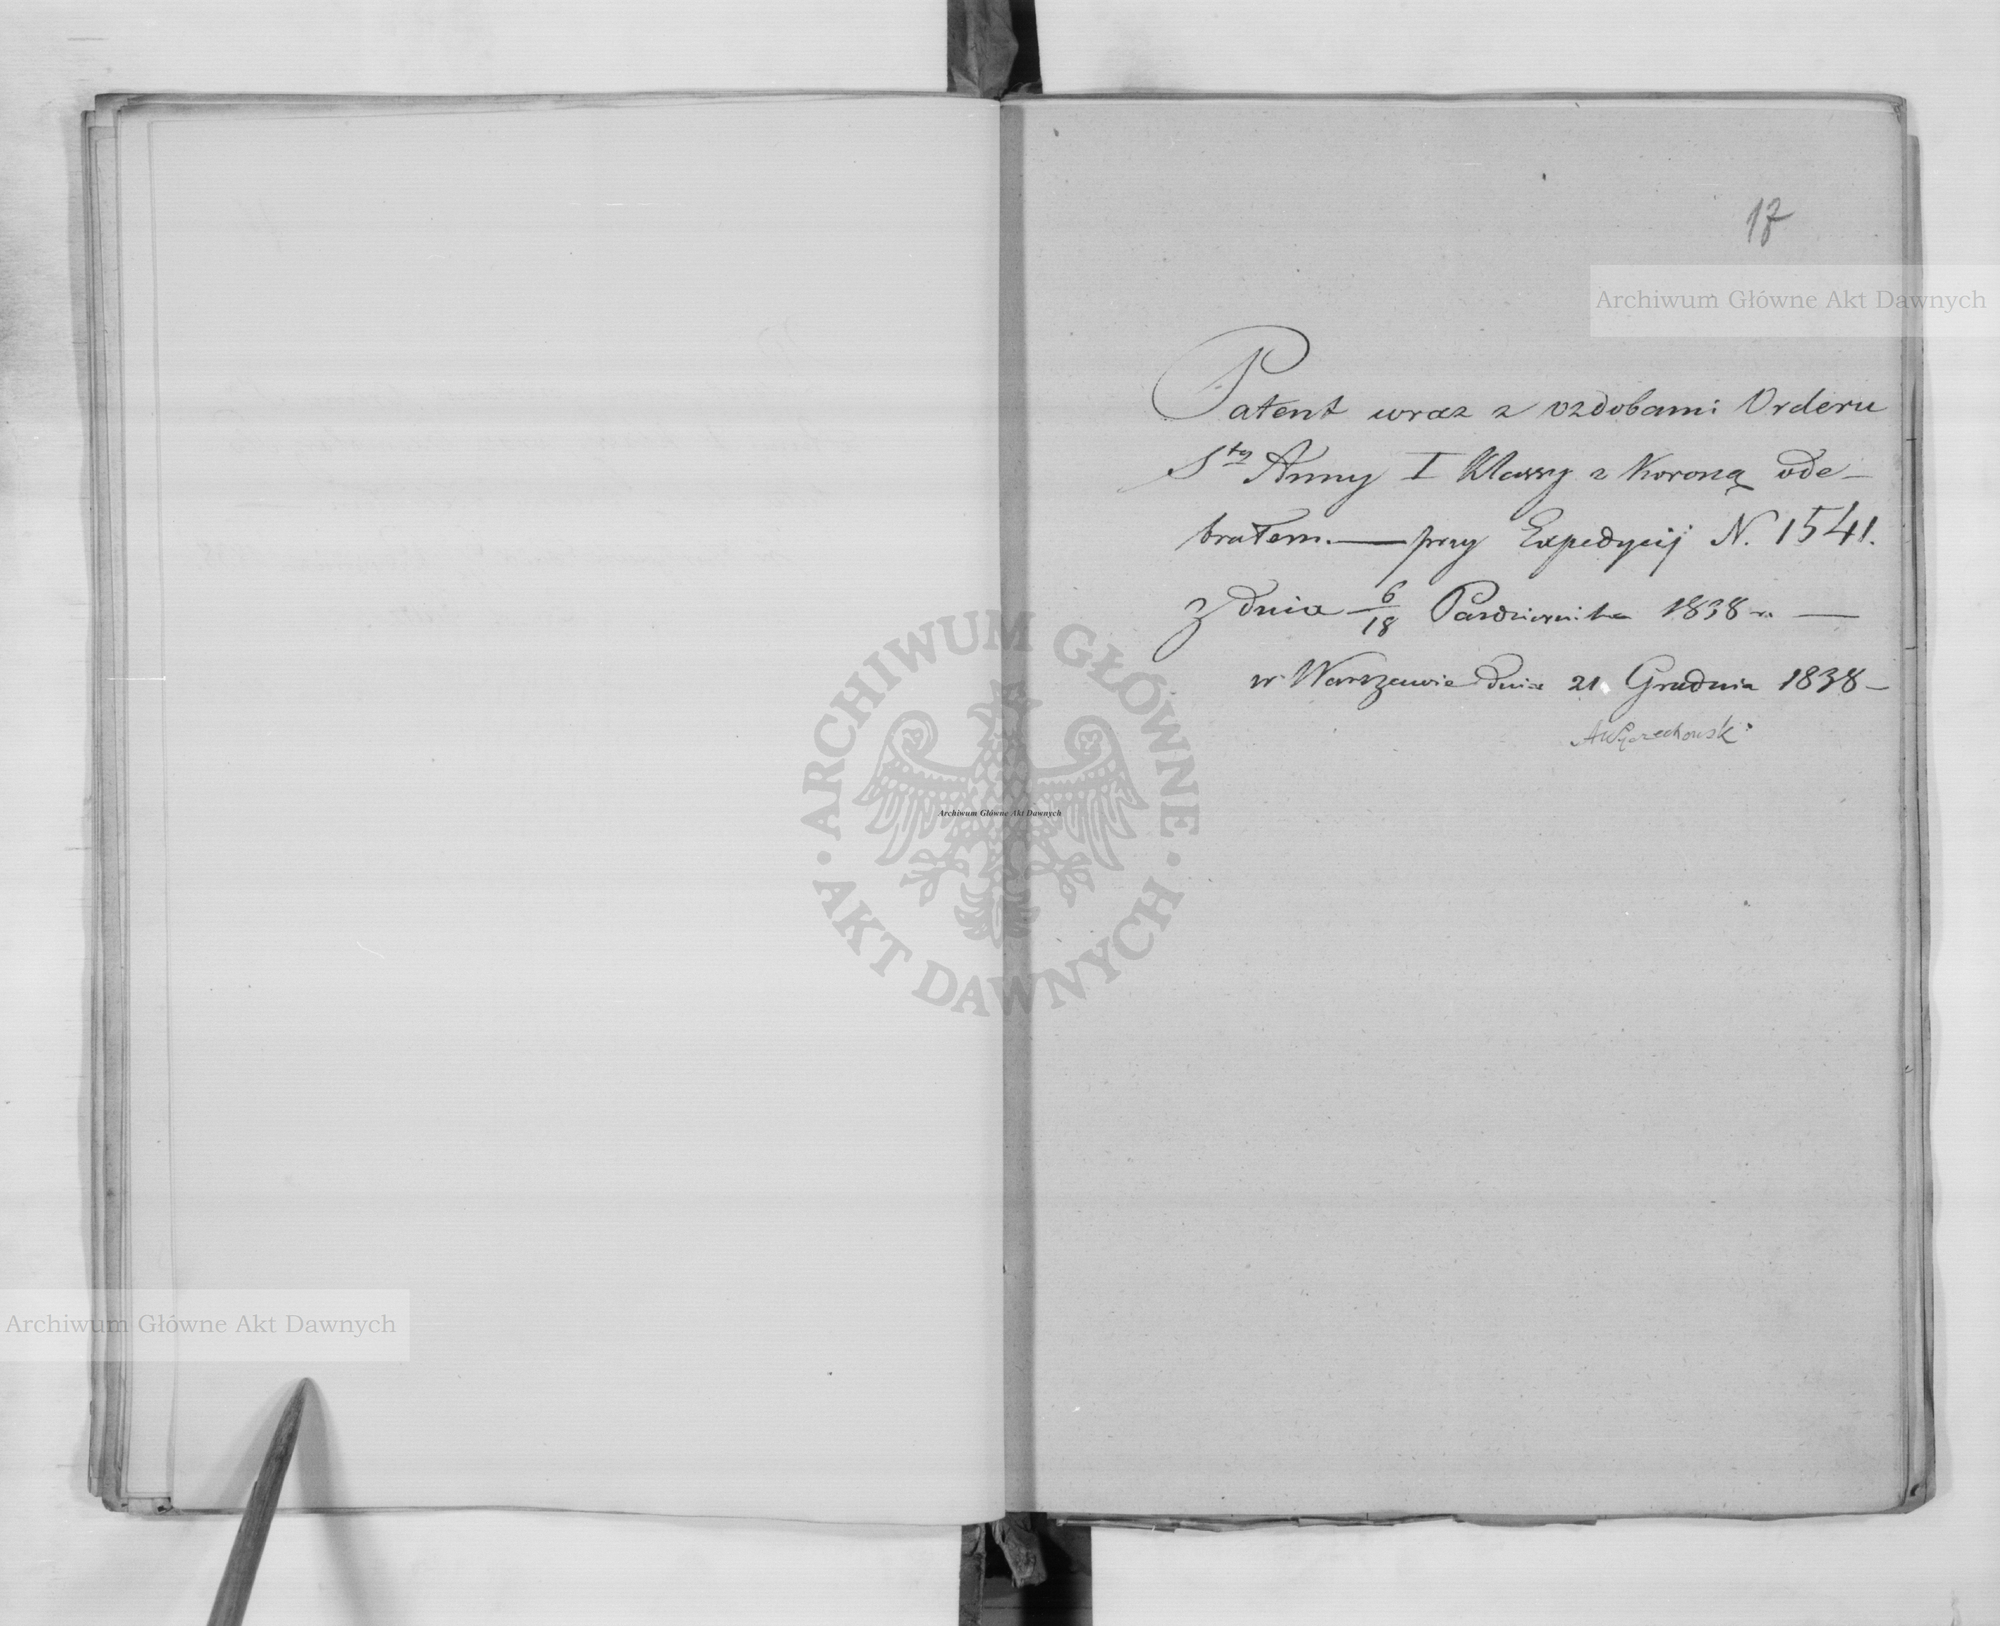 17
Archiwum Główne Akt Dawnych
Patent wraz z ozdobami Orderu
Stey Anny I Klassy z Koroną ode-
brałem. — przy Expedycij N. 1541.
z dnia 6/18 Pazdziernika 1838 r. —
w Warszawie dnia 21 Grudnia 1838 —
ARCHIWUM GŁÓWNE
Archiwum Główne Akt Dawnych
AKT DAWNYCH
Archiwum Główne Akt Dawnych